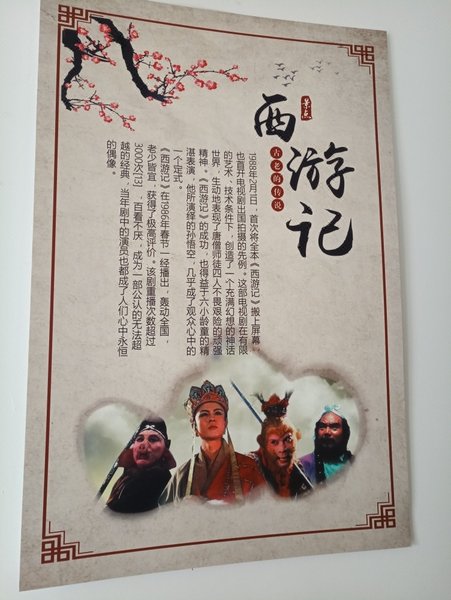 景点
西游记
古老的传说
1988年2月1日，首次将全本《西游记》搬上屏幕，
也首开电视剧出国拍摄的先例。这部电视剧在有限
的艺术、技术条件下，创造了一个充满幻想的神话
世界，生动地表现了唐僧师徒四人不畏艰险的顽强
精神。《西游记》的成功，也得益于六小龄童的精
湛表演，他所演绎的孙悟空，几乎成了观众心中的
一个定式。
《西游记》在1986年春节一经播出，轰动全国，
老少皆宜，获得了极高评价。该剧重播次数超过
3000次[13]，百看不厌，成为一部公认的无法超
越的经典，当年剧中的演员也都成了人们心中永恒
的偶像。